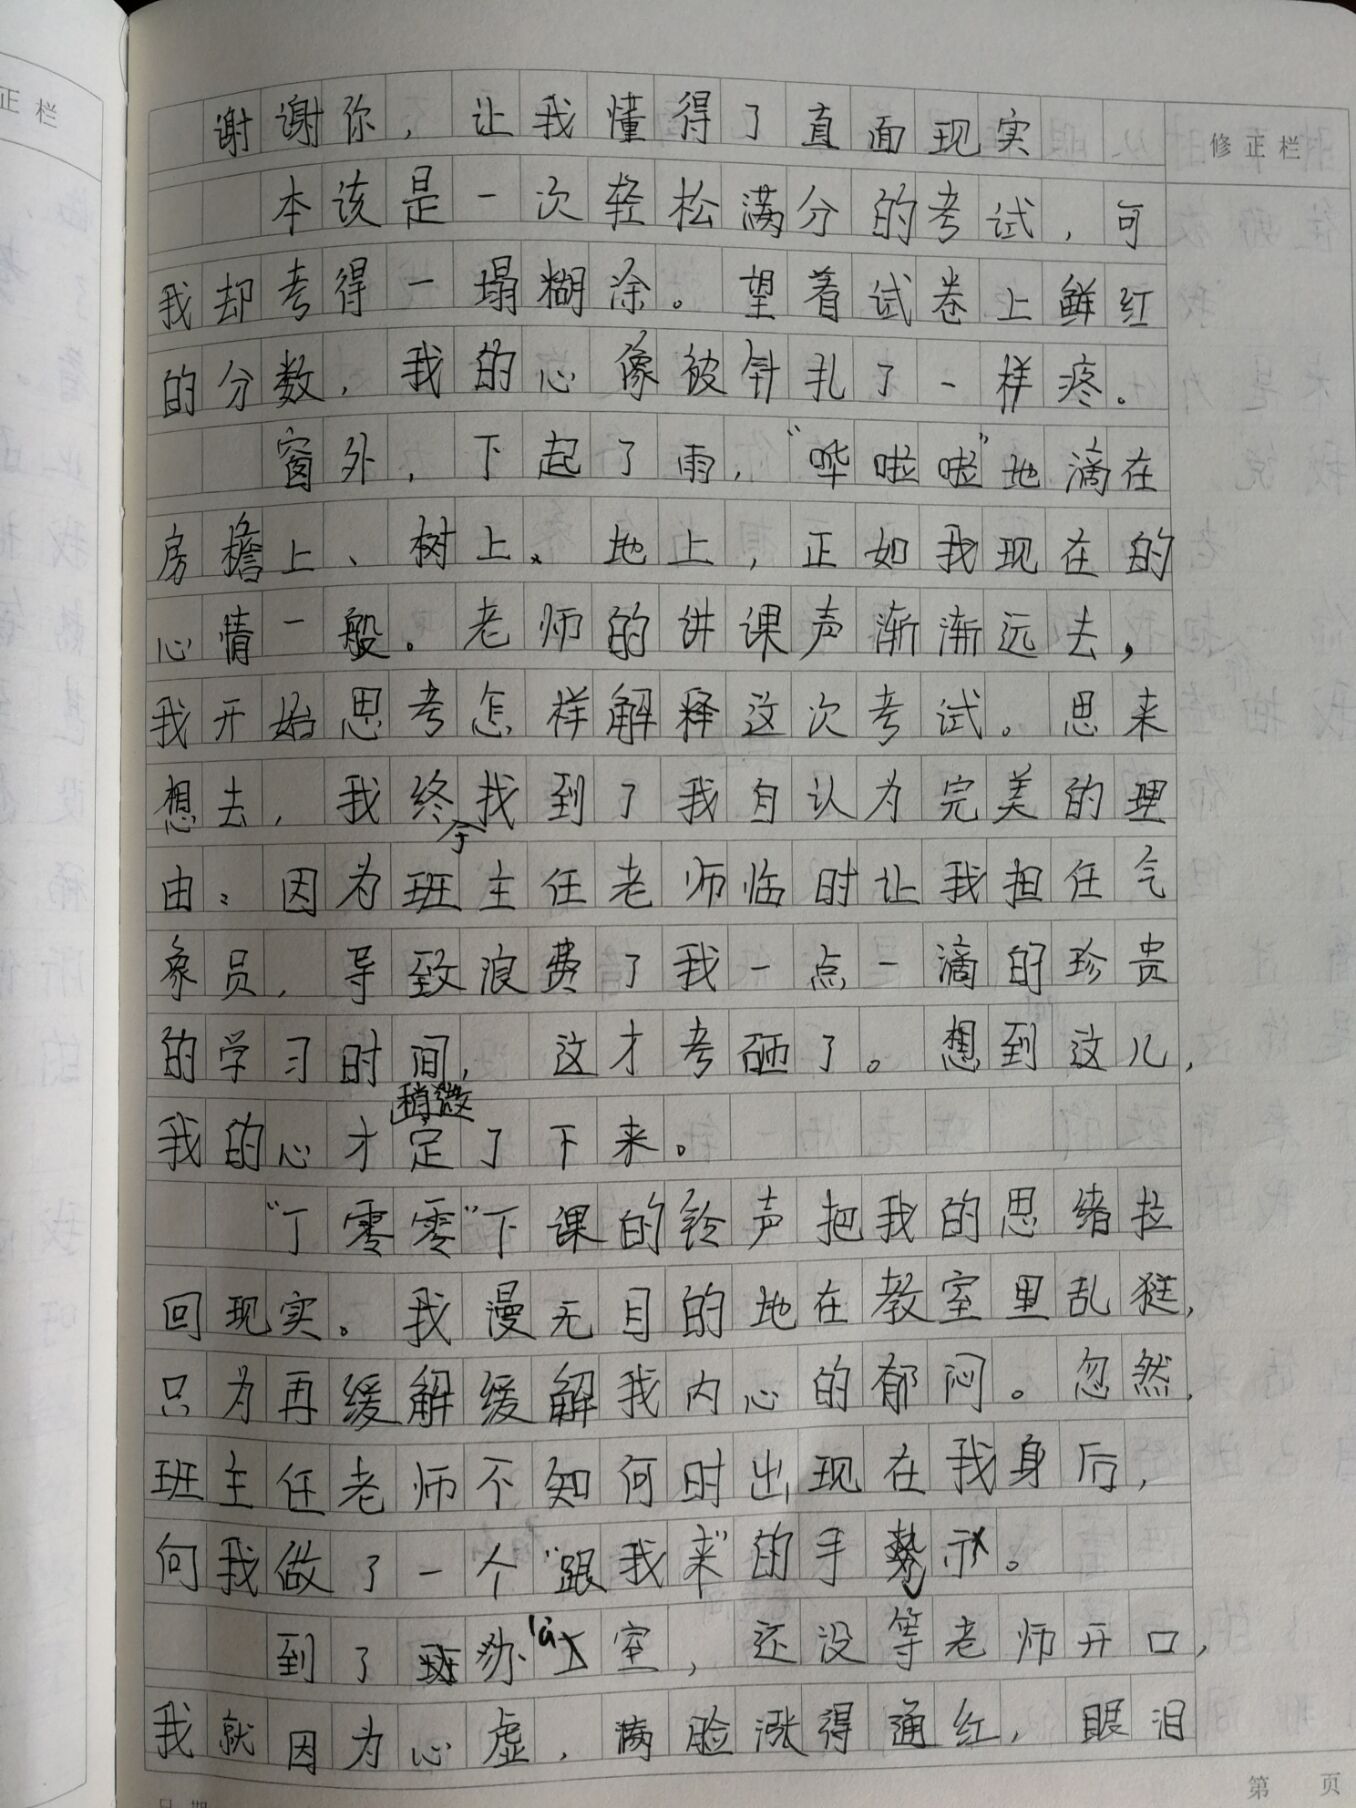 正栏
修正栏
谢谢你，让我懂得了直面现实
本该是一次轻松满分的考试，可
我却考得一塌糊涂。望着试卷上鲜红
的分数，我的心像被针扎了一样疼。
窗外，下起了雨，“哗啦啦”地滴在
房檐上、树上、地上，正如我现在的
心情一般。老师的讲课声渐渐远去，
我开始思考怎样解释这次考试。思来
想去，我终于找到了我自认为完美的理
由：因为班主任老师临时让我担任气
象员，导致浪费了我一点一滴的珍贵
的学习时间，这才考砸了。想到这儿，
我的心才稍微定了下来。
“丁零零”下课的铃声把我的思绪拉
回现实。我漫无目的地在教室里乱逛，
只为再缓解缓解我内心的郁闷。忽然，
班主任老师不知何时出现在我身后，
向我做了一个“跟我来”的手势。
到了办公室，还没等老师开口，
我就因为心虚，满脸涨得通红，眼泪
第 页